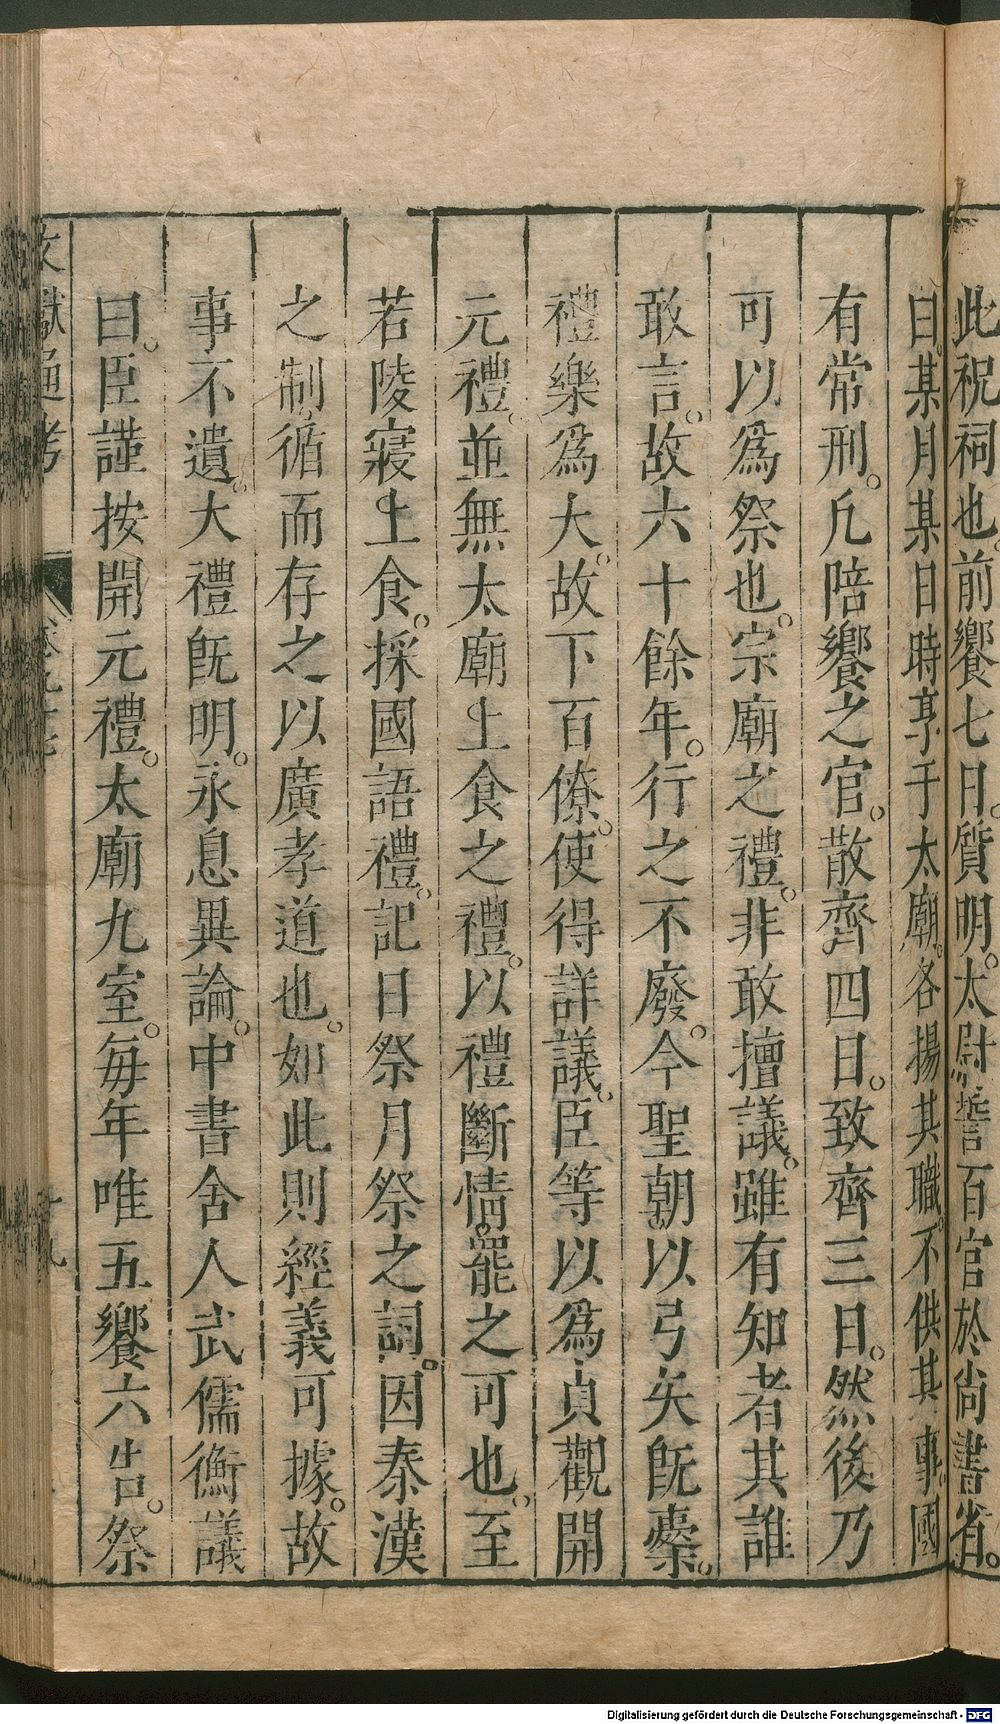 此祝祠也。前饗七日。質明。太尉誓百官於尚書省。
曰。某月某日時享于太廟。各揚其職。不供其事。國
有常刑。凡陪饗之官。散齊四日。致齊三日。然後乃
可以為祭也。宗廟之禮。非敢擅議。雖有知者其誰
敢言。故六十餘年。行之不廢。今聖朝以弓矢旣櫜。
禮樂為大。故下百僚。使得詳議。臣等以為貞觀開
元禮。並無太廟上食之禮。以禮斷情。罷之可也。至
若陵寢上食。採國語禮。記日祭月祭之詞。因秦漢
之制。循而存之以廣孝道也。如此則經義可據。故
事不遺。大禮旣明。永息異論。中書舍人武儒衡議
曰。臣謹按開元禮。太廟九室。每年唯五饗六告。祭
文獻通考
Digitalisierung gefördert durch die Deutsche Forschungsgemeinschaft - DFG